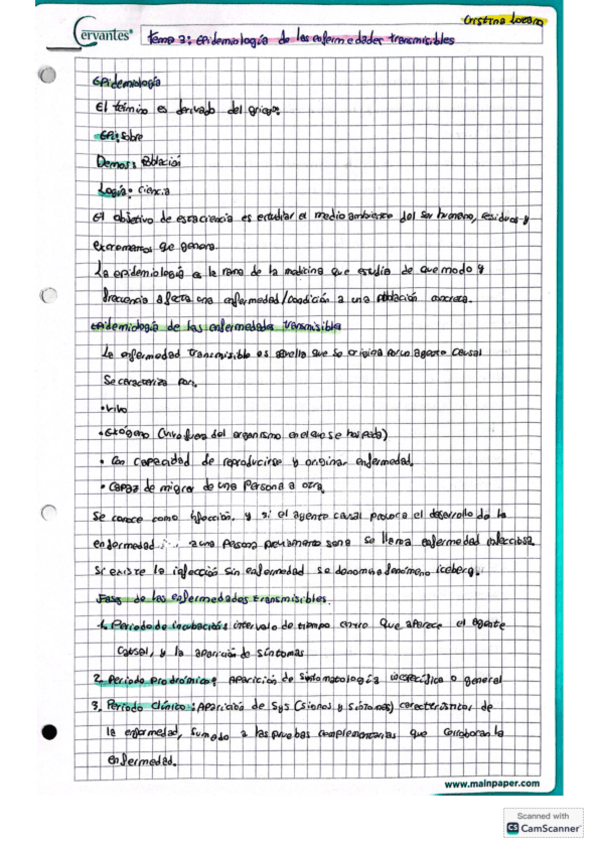 Cristina Lozano
Cervantes®
Tema 2: Epidemiología de las enfermedades transmisibles
Epidemiología
El término es derivado del griego:
Epi: Sobre
Demos: Población
Logía: Ciencia
El objetivo de esta ciencia es estudiar el medio ambiente del ser humano, residuos y
excrementos que genera.
La epidemiología es la rama de la medicina que estudia de que modo y
frecuencia afecta una enfermedad/condición a una población concreta.
Epidemiología de las enfermedades transmisible
La enfermedad transmisible es aquella que se origina por un agente causal
Se caracteriza por:
• Vivo
• Exógeno (vivo fuera del organismo en el que se hospeda)
• Con capacidad de reproducirse y originar enfermedad.
• Capaz de migrar de una persona a otra.
Se conoce como infección, y si el agente causal provoca el desarrollo de la
enfermedad a una persona previamente sana se llama enfermedad infecciosa.
Si existe la infección sin enfermedad se denomina fenómeno iceberg.
Fases de las enfermedades transmisibles.
1. Periodo de incubación: intervalo de tiempo entre que aparece el agente
causal, y la aparición de síntomas
2. Periodo prodrómico: Aparición de sintomatología inespecífica o general
3. Periodo clínico: Aparición de SyS (signos y síntomas) característicos de
la enfermedad, sumado a las pruebas complementarias que corroboran la
enfermedad.
www.mainpaper.com
Scanned with
CS CamScanner